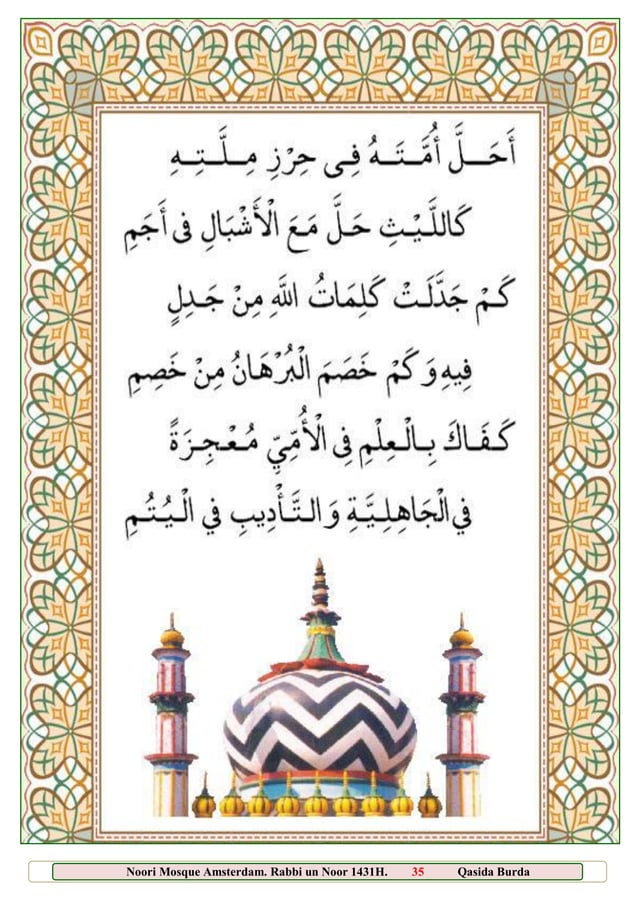 أَحَلَّ أُمَّتَهُ فِى حِرْزِ مِلَّتِهِ
كَاللَّيْثِ حَلَّ مَعَ الْأَشْبَالِ فى أَجَمِ
كَمْ جَدَّلَتْ كَلِمَاتُ اللَّهِ مِنْ جَدِلٍ
فِيهِ وَكَمْ خَصَمَ الْبُرْهَانُ مِنْ خَصِمِ
كَفَاكَ بِالْعِلْمِ فِى الْأُمِّيِّ مُعْجِزَةً
فِي الْجَاهِلِيَّةِ وَالتَّأْدِيبِ فِي الْيُتُمِ
Noori Mosque Amsterdam. Rabbi un Noor 1431H. 35 Qasida Burda